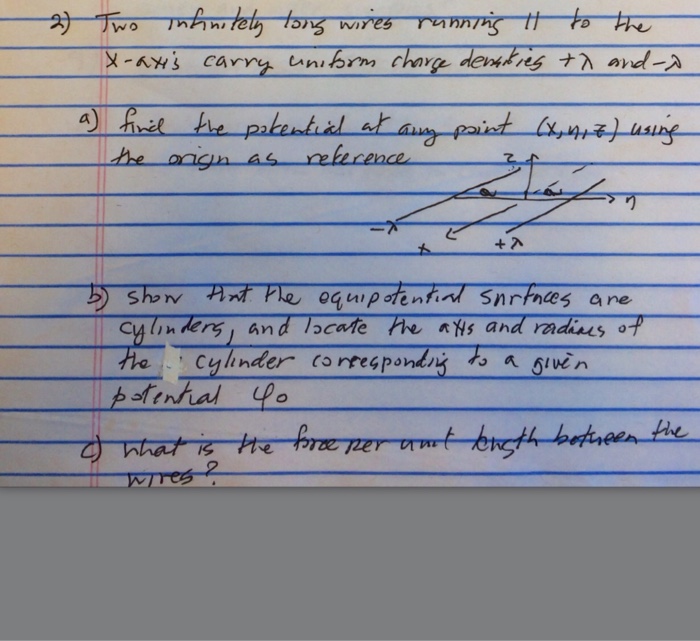 2) Two infinitely long wires running || to the
x-axis carry uniform charge densities +λ and -λ
a) find the potential at any point (x,y,z) using
the origin as reference
z
a a
y
-λ
x +λ
b) show that the equipotential surfaces are
cylinders, and locate the axis and radius of
the cylinder corresponding to a given
potential φo
c) what is the force per unit length between the
wires?